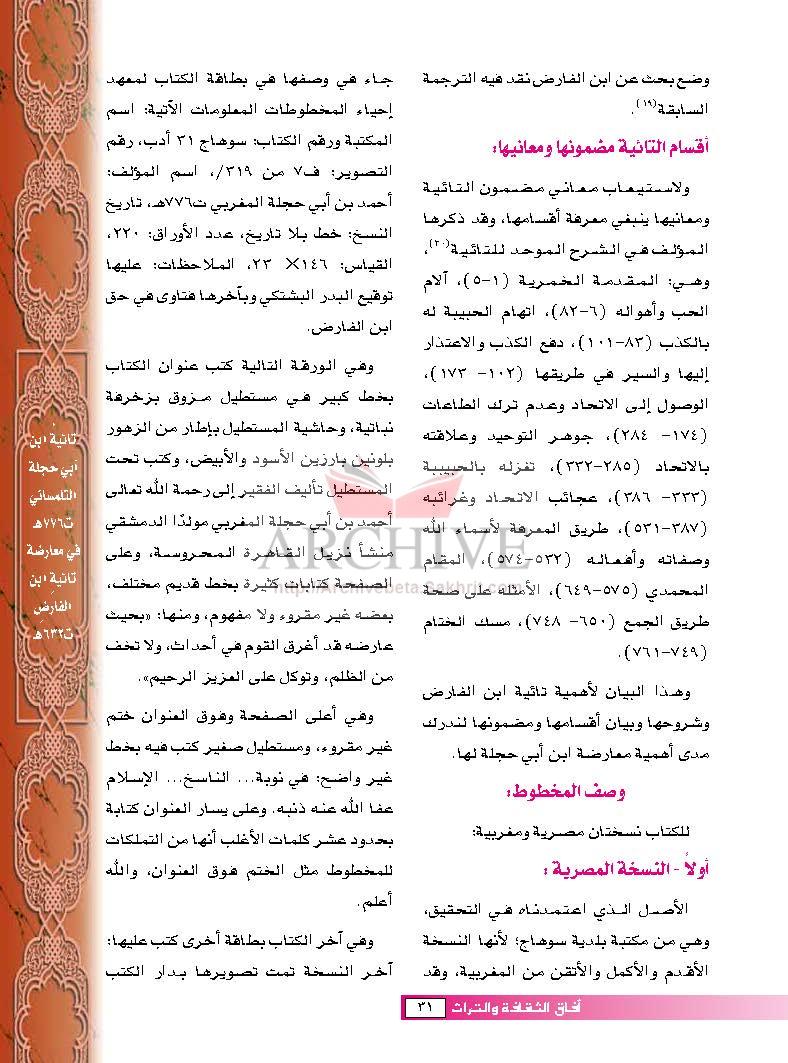 وضع بحث عن ابن الفارض نقد فيه الترجمة
السابقة(١٩).
أقسام التائية مضمونها ومعانيها:
ولاستيعاب معاني مضمون التائية
ومعانيها ينبغي معرفة أقسامها، وقد ذكرها
المؤلف في الشرح الموحد للتائية(٢٠)،
وهي: المقدمة الخمرية (١-٥)، آلام
الحب وأهواله (٦-٨٢)، اتهام الحبيبة له
بالكذب (٨٣-١٠١)، دفع الكذب والاعتذار
إليها والسير في طريقها (١٠٢- ١٧٣)،
الوصول إلى الاتحاد وعدم ترك الطاعات
(١٧٤- ٢٨٤)، جوهر التوحيد وعلاقته
بالاتحاد (٢٨٥-٣٣٢)، تغزله بالحبيبة
(٣٣٣- ٣٨٦)، عجائب الاتحاد وغرائبه
(٣٨٧-٥٣١)، طريق المعرفة لأسماء الله
وصفاته وأفعاله (٥٣٢-٥٧٤)، المقام
المحمدي (٥٧٥-٦٤٩)، الأمثلة على صحة
طريق الجمع (٦٥٠- ٧٤٨)، مسك الختام
(٧٤٩-٧٦١).
وهذا البيان لأهمية تائية ابن الفارض
وشروحها وبيان أقسامها ومضمونها لندرك
مدى أهمية معارضة ابن أبي حجلة لها.
وصف المخطوط:
للكتاب نسختان مصرية ومغربية:
أولاً - النسخة المصرية :
الأصل الذي اعتمدناه في التحقيق،
وهي من مكتبة بلدية سوهاج؛ لأنها النسخة
الأقدم والأكمل والأتقن من المغربية، وقد
جاء في وصفها في بطاقة الكتاب لمعهد
إحياء المخطوطات المعلومات الآتية: اسم
المكتبة ورقم الكتاب: سوهاج ٣١ أدب، رقم
التصوير: ف٧ من ٣١٩/، اسم المؤلف:
أحمد بن أبي حجلة المغربي ت٧٧٦هـ، تاريخ
النسخ: خط بلا تاريخ، عدد الأوراق: ٢٢٠،
القياس: ١٤٦× ٢٣، الملاحظات: عليها
توقيع البدر البشتكي وبآخرها فتاوى في حق
ابن الفارض.
وفي الورقة التالية كتب عنوان الكتاب
بخط كبير في مستطيل مزوق بزخرفة
نباتية، وحاشية المستطيل بإطار من الزهور
بلونين بارزين الأسود والأبيض، وكتب تحت
المستطيل تأليف الفقير إلى رحمة الله تعالى
أحمد بن أبي حجلة المغربي مولدًا الدمشقي
منشأ نزيل القاهرة المحروسة، وعلى
الصفحة كتابات كثيرة بخط قديم مختلف،
بعضه غير مقروء ولا مفهوم، ومنها: «بحيث
عارضه قد أغرق القوم في أحداث، ولا تخف
من الظلم، وتوكل على العزيز الرحيم».
وفي أعلى الصفحة وفوق العنوان ختم
غير مقروء، ومستطيل صغير كتب فيه بخط
غير واضح: في نوبة... الناسخ... الإسلام
عفا الله عنه ذنبه. وعلى يسار العنوان كتابة
بحدود عشر كلمات الأغلب أنها من التملكات
للمخطوط مثل الختم فوق العنوان، والله
أعلم.
وفي آخر الكتاب بطاقة أخرى كتب عليها:
آخر النسخة تمت تصويرها بدار الكتب
تائية ابن
أبي حجلة
التلمساني
ت٧٧٦هـ
في معارضة
تائية ابن
الفارض
ت٦٣٢هـ
ARCHIVE
http://Archivebeta.Sakhrit.com
آفاق الثقافة والتراث ٣١